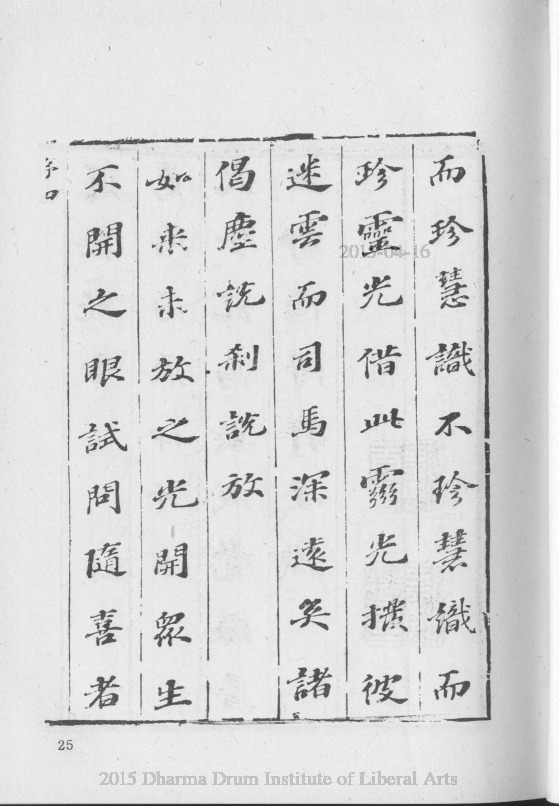 而珍慧識不珍慧識而
珍靈光借此靈光撲彼
迷雲而司馬深遠矣諸
偈塵說剎說放
如來未放之光開眾生
不開之眼試問隨喜者
25
2015-04-16
2015 Dharma Drum Institute of Liberal Arts